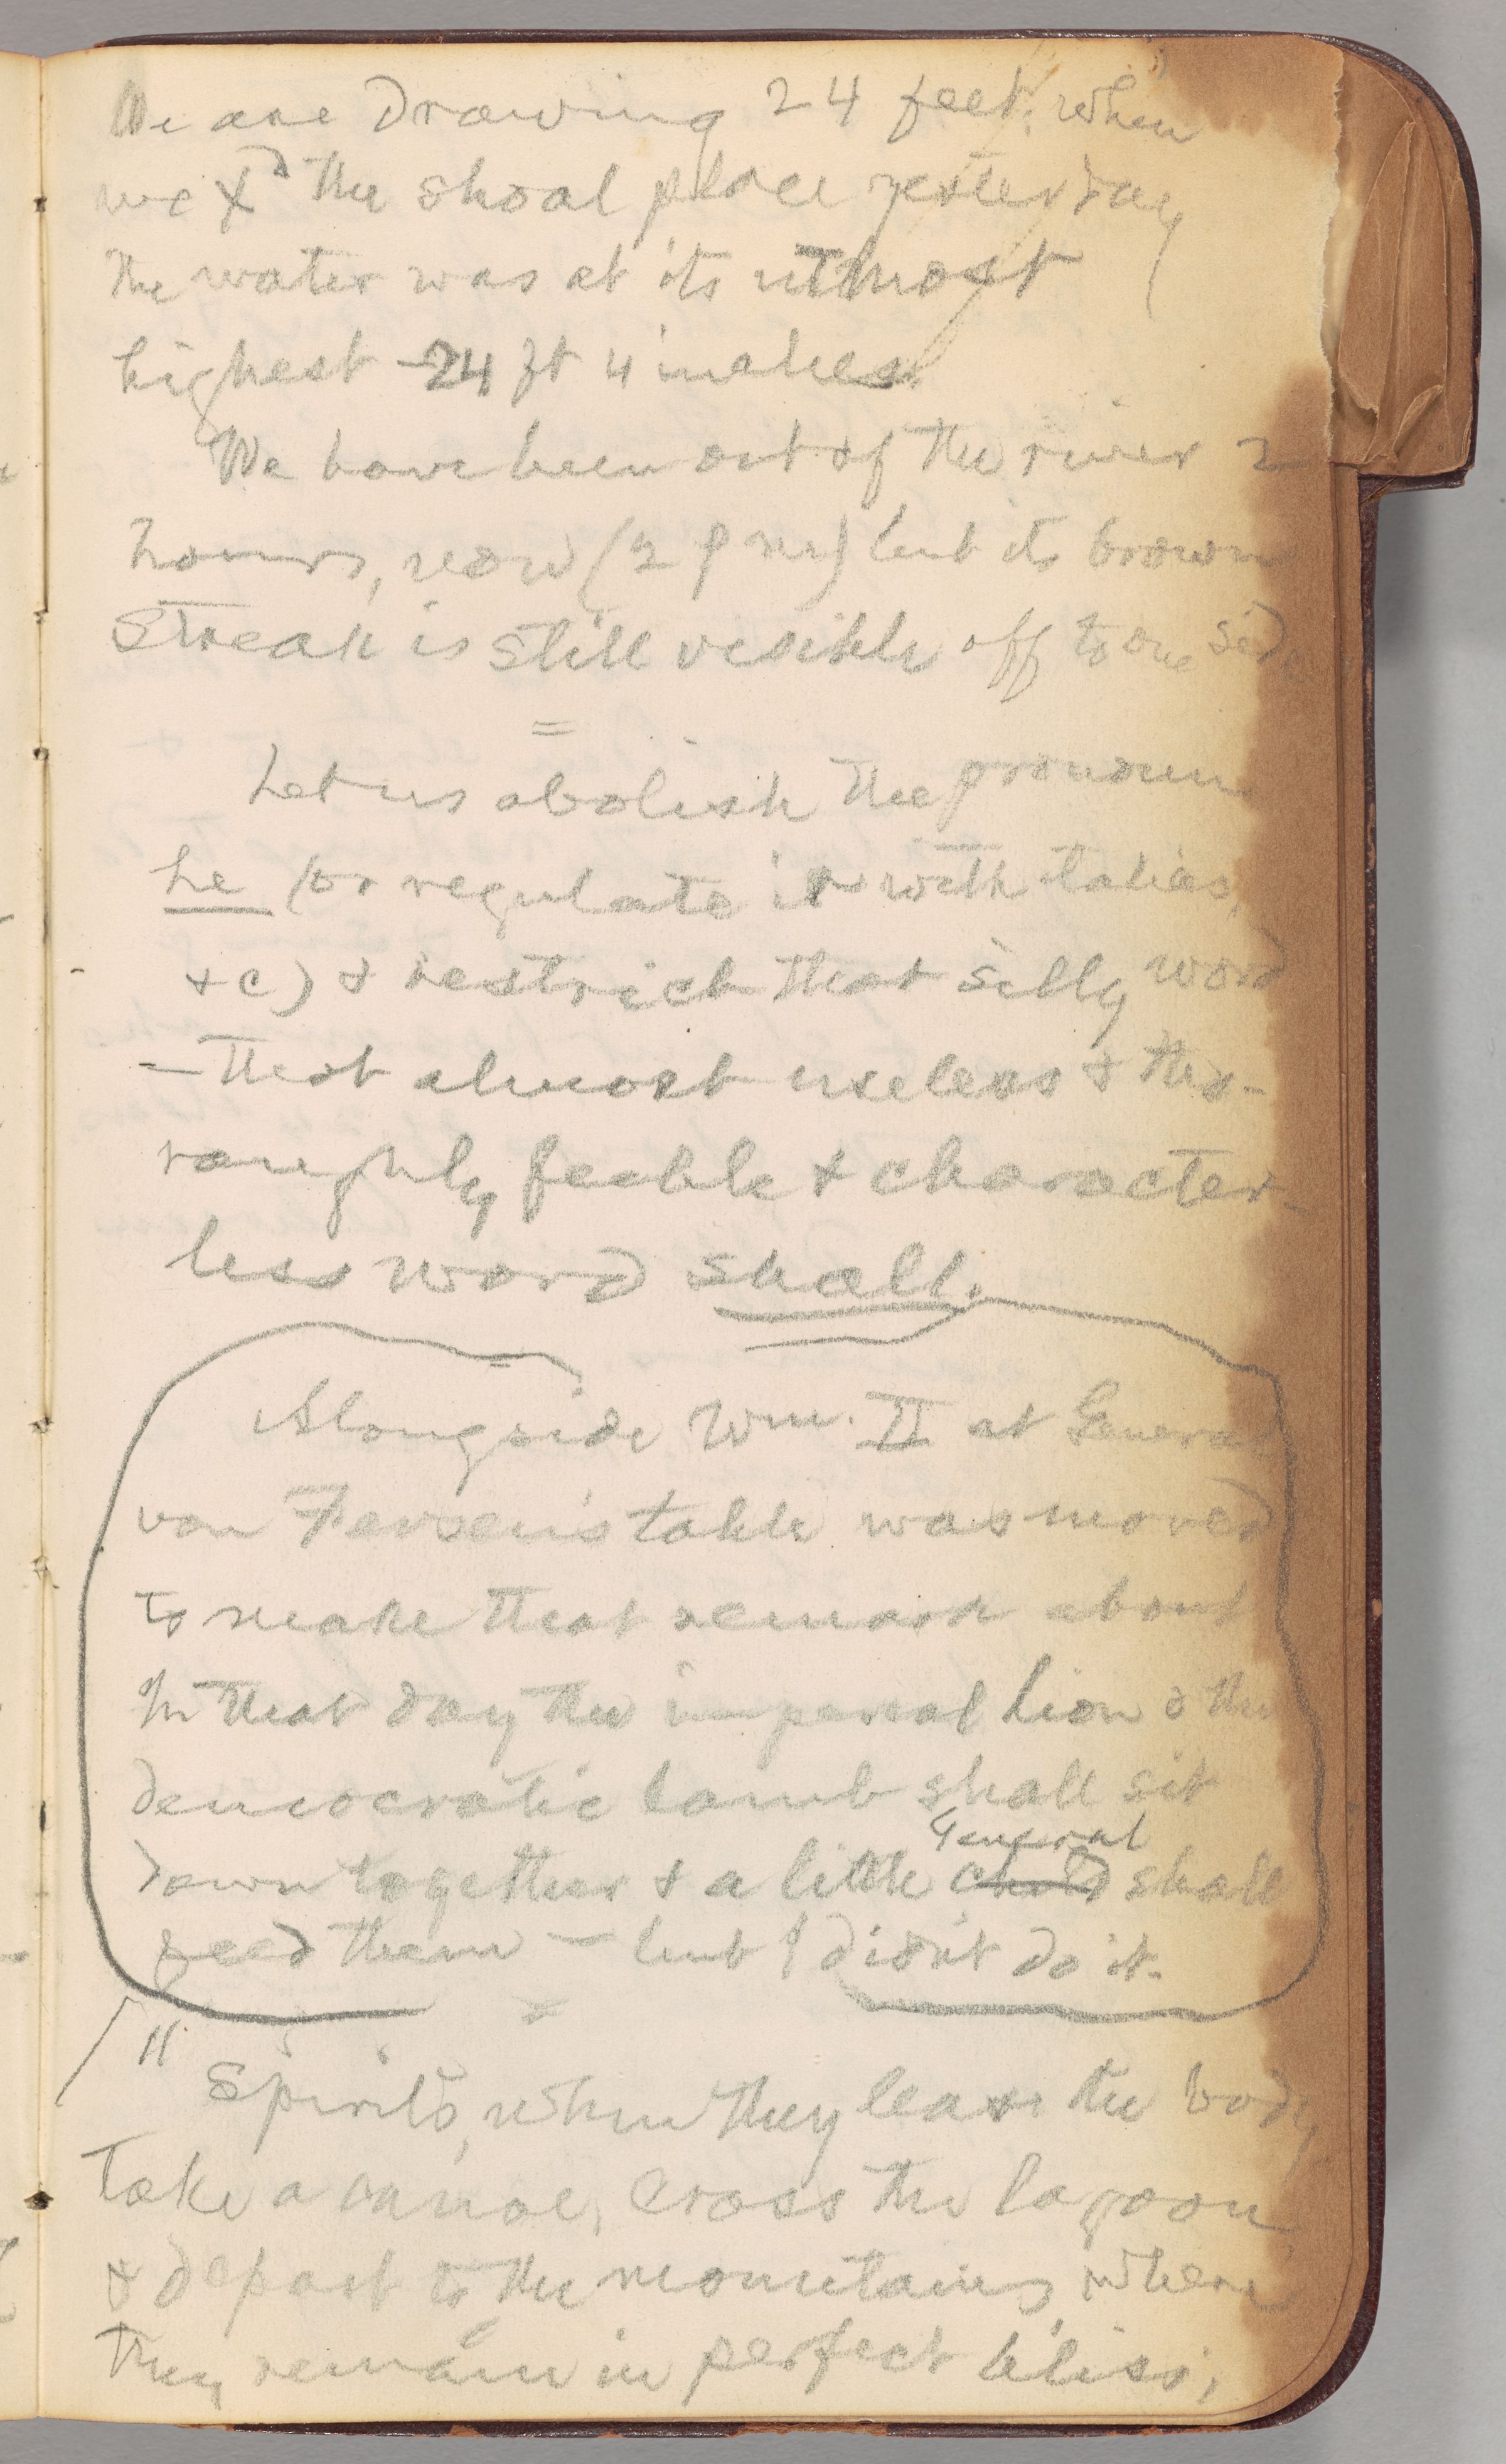 We are drawing 24 feet; when
we X^d the shoal place yesterday
the water was at its utmost
highest — 24 ft 4 inches.
We have been out of the river 2
hours, now (2 p m) but its brown
streak is still visible off to one side
=
Let us abolish the pronoun
he (or regulate it with italics,
&c) & restrict that silly word
—that almost useless & tho-
roughly feeble & character-
less word shall.
=
Alongside Wm. II at General
von Versen's table was moved
to make that remark about
In that day the imperial lion & the
democratic lamb shall sit
down together & a little child General shall
feed them — but I didn't do it.
=
11
Spirits, when they leave the body,
take a canoe, cross the lagoon
& depart to the mountains, where
they remain in perfect bliss;